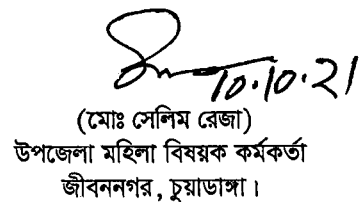 10.10.21
(মোঃ সেলিম রেজা)
উপজেলা মহিলা বিষয়ক কর্মকর্তা
জীবননগর, চুয়াডাঙ্গা।